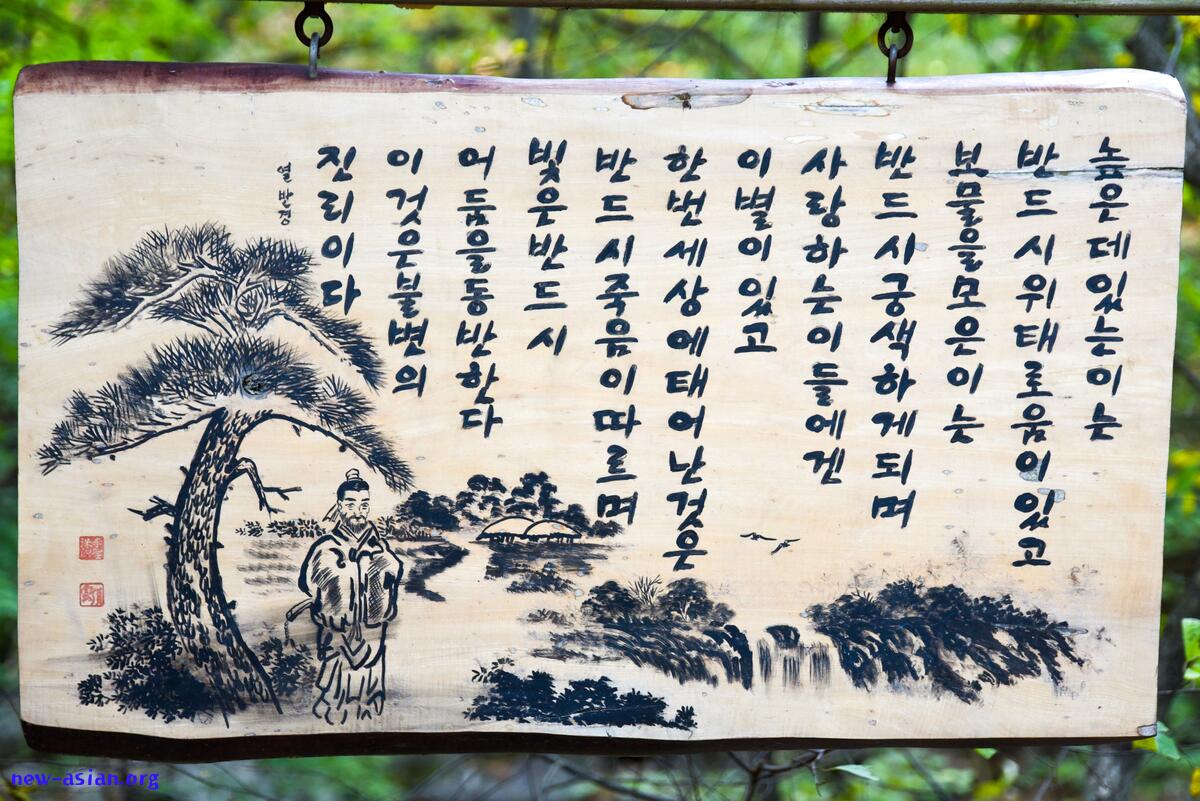 높은데있는이는
반드시위태로움이있고
보물을모은이는
반드시궁색하게되며
사랑하는이들에겐
이별이있고
한번세상에태어난것은
반드시죽음이따르며
빛은반드시
어둠을동반한다
이것은불변의
진리이다
열반경
new-asian.org